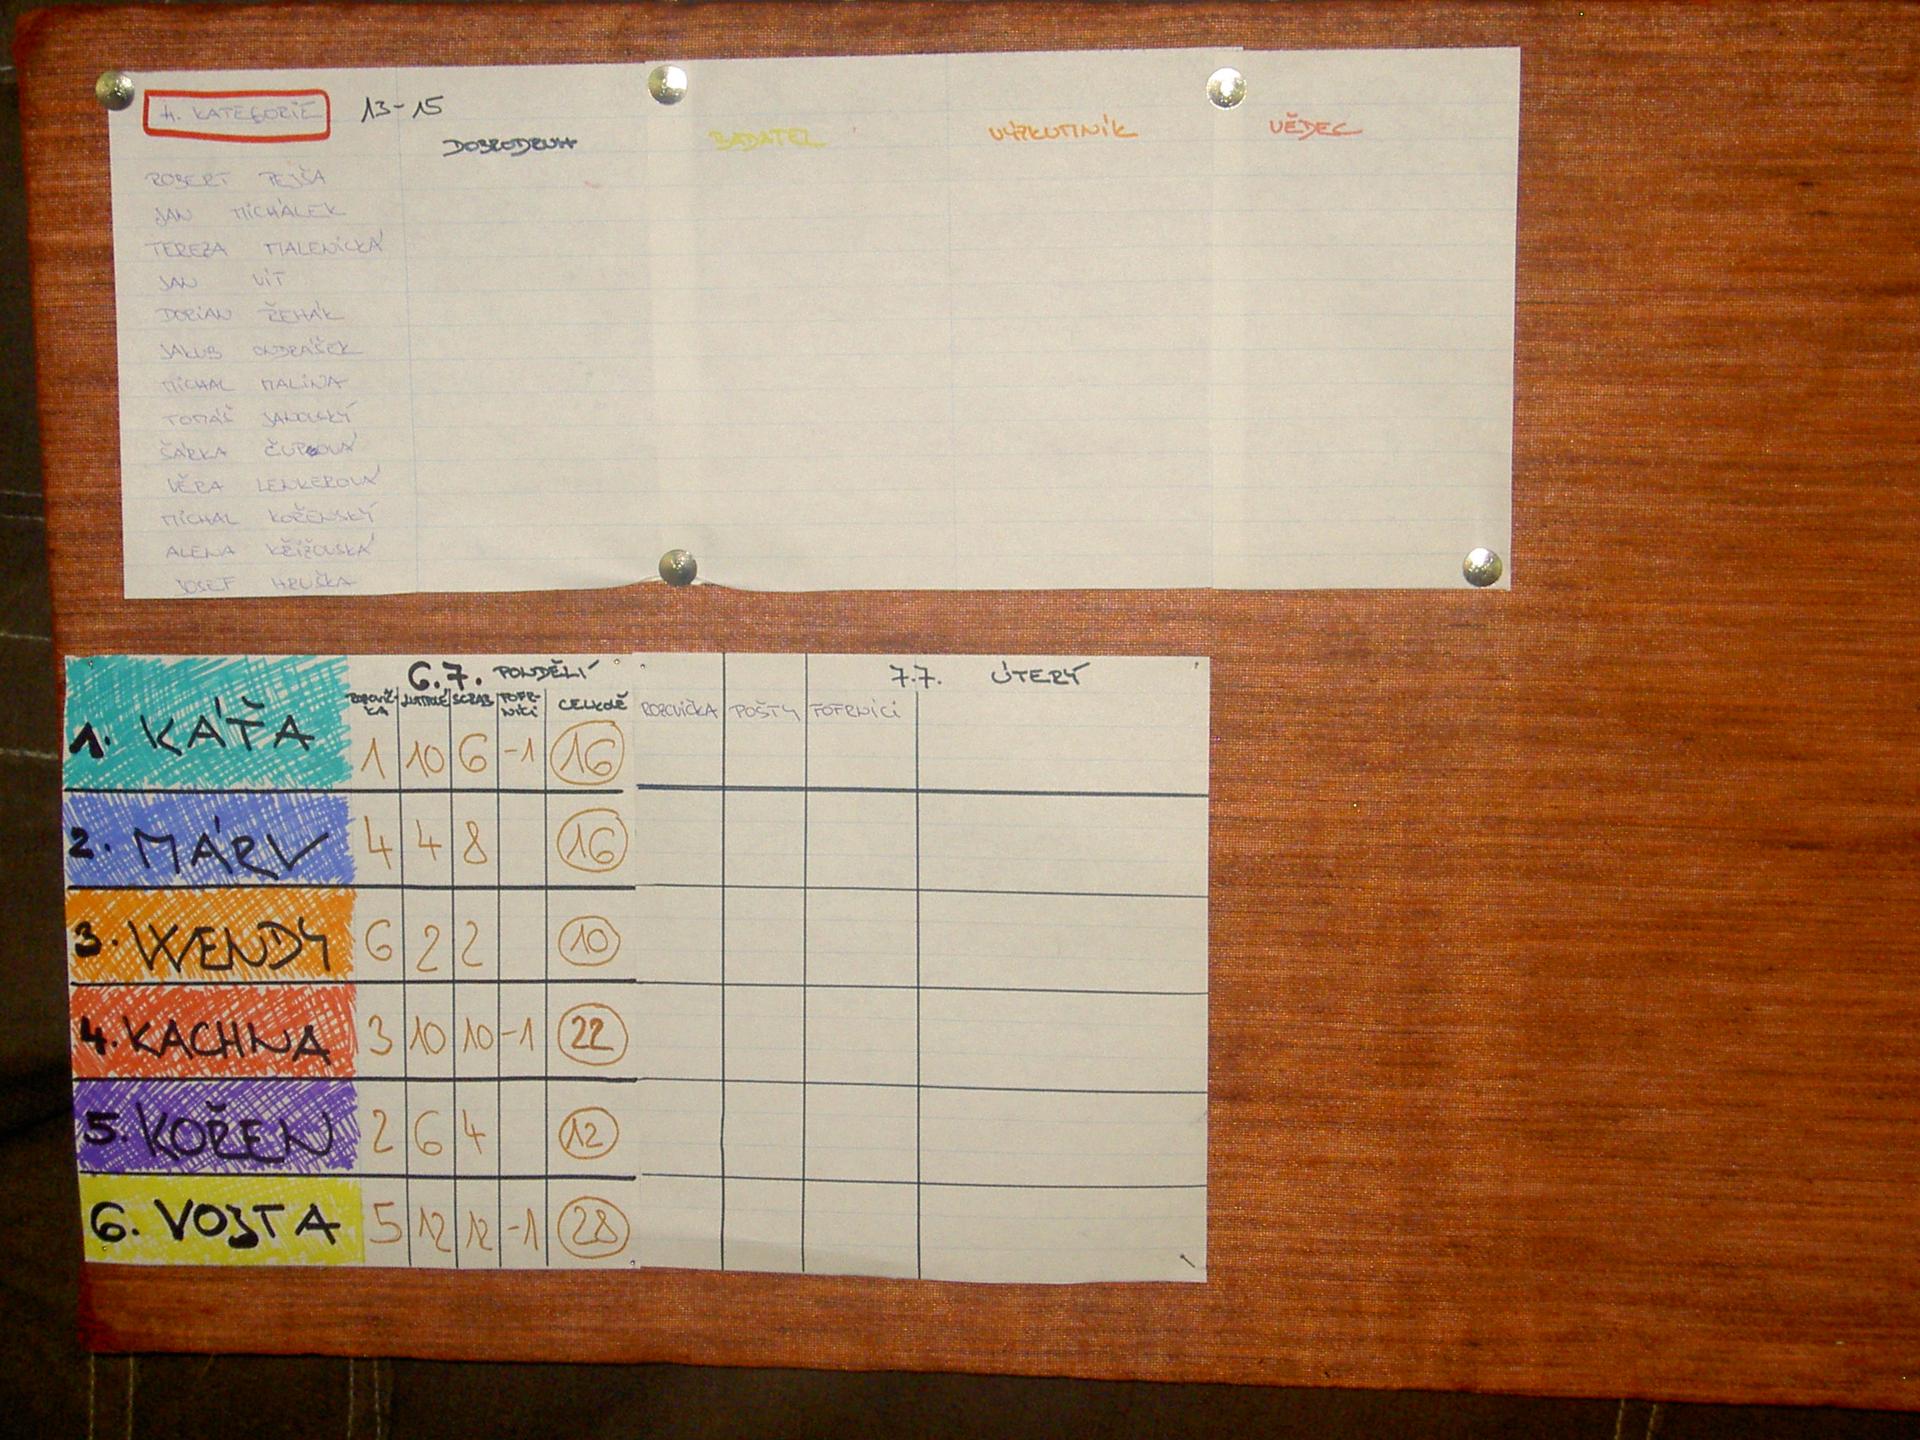 4. KATEGORIE 13-15
DOBRODRUH BADATEL VÝZKUMNÍK VĚDEC
ROBERT PEJŠA
JAN MICHÁLEK
TEREZA MALENICKÁ
JAN VÍT
DORIAN ŘEHÁK
JAKUB ONDRÁŠEK
MICHAL MALINA
TOMÁŠ JANOVSKÝ
ŠÁRKA
VĚRA LENKEROVÁ
MICHAL KOŘENSKÝ
ALENA KŘÍŽOVSKÁ
JOSEF HRUŠKA
6.7. PONDĚLÍ 7.7. ÚTERÝ
ROZCVIČ-KA SCRAB FOFR-NÍCI CELKOVĚ ROZCVIČKA POŠTY FOFRNÍCI
1. KÁŤA 1 10 6 -1 16
2. MÁRV 4 4 8 16
3. WENDY 6 2 2 10
4. KACHNA 3 10 10 -1 22
5. KOŘEN 2 6 4 12
6. VOJTA 5 12 12 -1 28